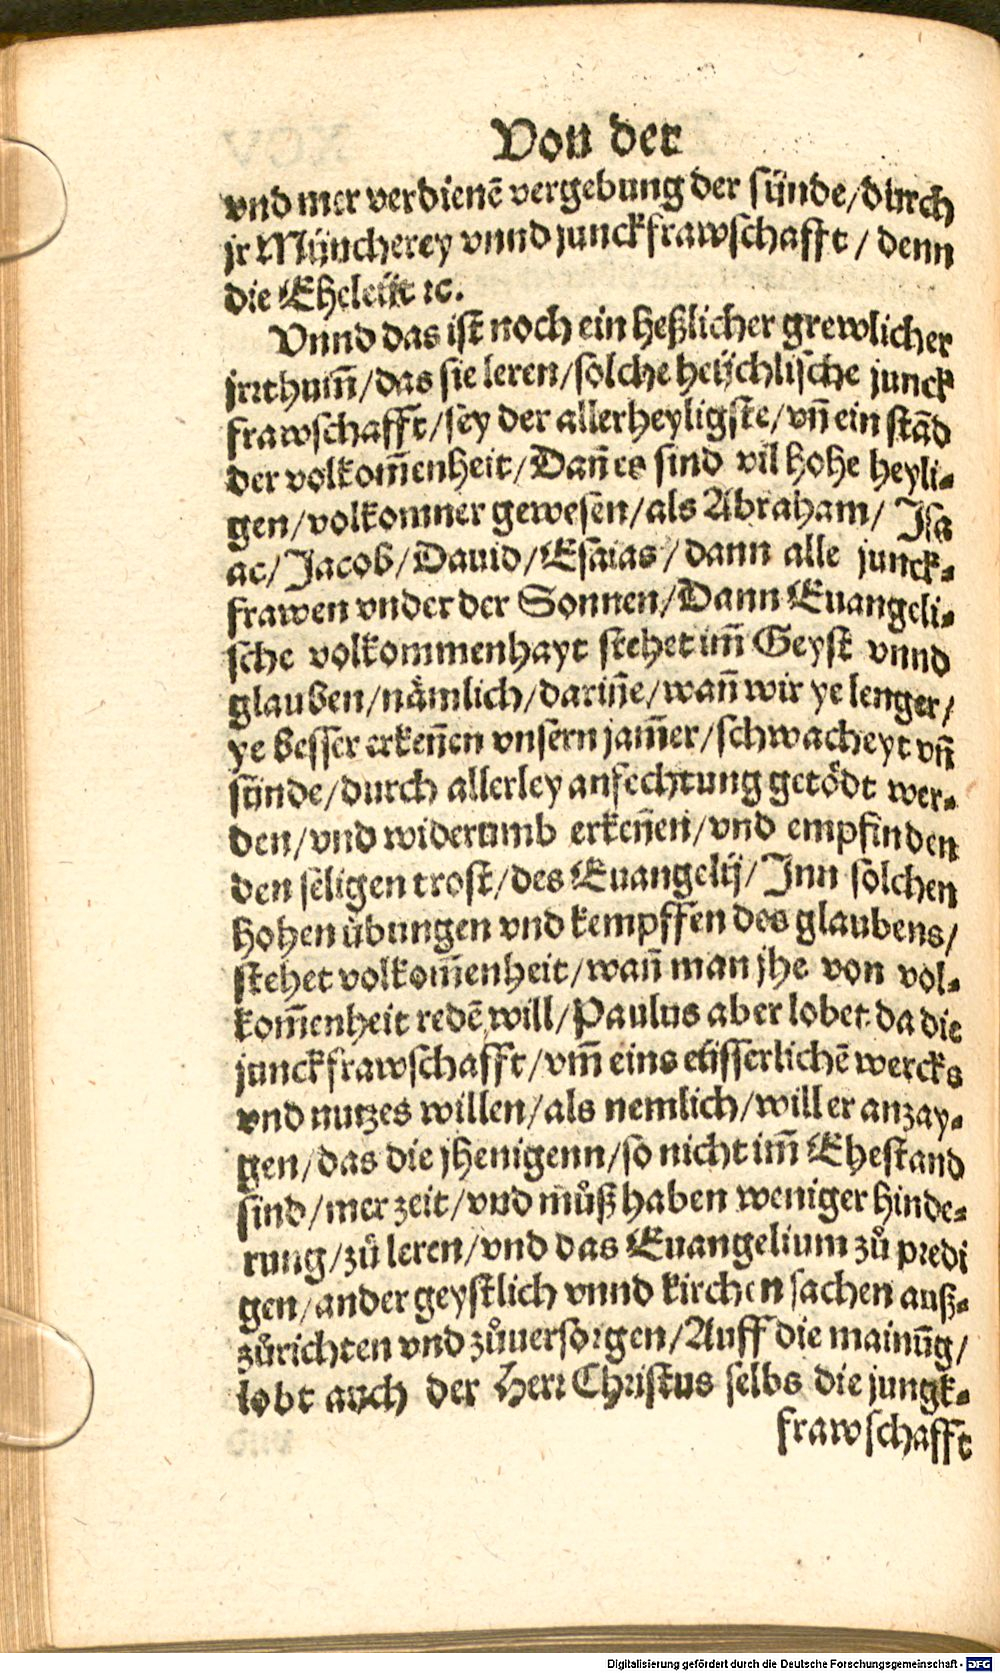 Von der
vnd mer verdienē vergebung der sünde/durch
jr Müncherey vnnd junckfrawschafft / denn
die Eheleüt ꝛc.
Vnnd das ist noch ein heßlicher grewlicher
jrrthum̃/das sie leren/solche heüchlische junck
frawschafft/sey der allerheyligste/vñ ein stãd
der volkom̃enheit/Dañ es sind vil hohe heyli-
gen/volkomner gewesen/als Abraham/ Isa
ac/Jacob/Dauid/Esaias/dann alle junck-
frawen vnder der Sonnen/Dann Euangeli-
sche volkommenhayt stehet im̃ Geyst vnnd
glauben/nämlich/dariñe/wañ wir ye lenger/
ye besser erkeñen vnsern jam̃er/schwacheyt vñ
sünde/durch allerley anfechtung getödt wer-
den/vnd widerumb erkeñen/vnd empfinden
den seligen trost/des Euangelij/Inn solchen
hohen übungen vnd kempffen des glaubens/
stehet volkom̃enheit/wañ man jhe von vol-
kom̃enheit redē will/Paulus aber lobet da die
junckfrawschafft/vm̃ eins eüsserlichē wercks
vnd nutzes willen/als nemlich/will er anzay-
gen/das die jhenigenn/so nicht im̃ Ehestand
sind/mer zeit/vnd můß haben weniger hinde-
rung/zů leren/vnd das Euangelium zů predi
gen/ander geystlich vnnd kirchen sachen auß-
zůrichten vnd zůuersorgen/Auff die mainũg/
lobt auch der Herr Christus selbs die jungk-
frawschafft
Digitalisierung gefördert durch die Deutsche Forschungsgemeinschaft - DFG